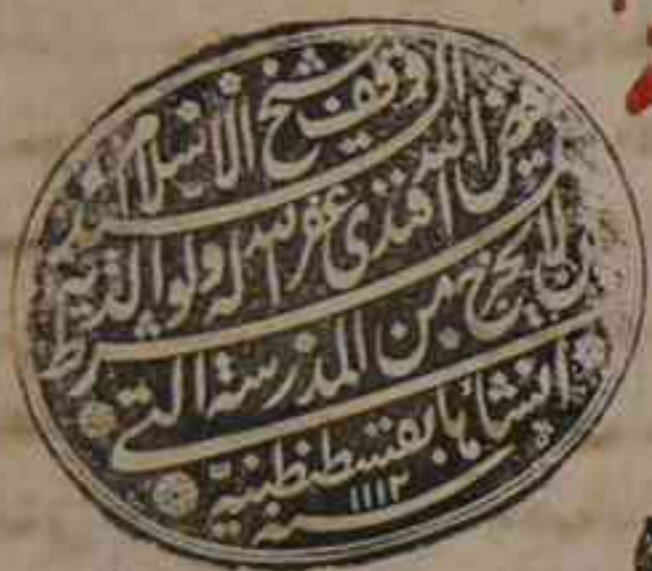 وقف شيخ الاسلام السيد
فيض الله افندى غفر الله له ولوالديه
بشرط ان لا يخرج من المدرسة التى
انشاها بقسطنطينية
سنه ١١١٢